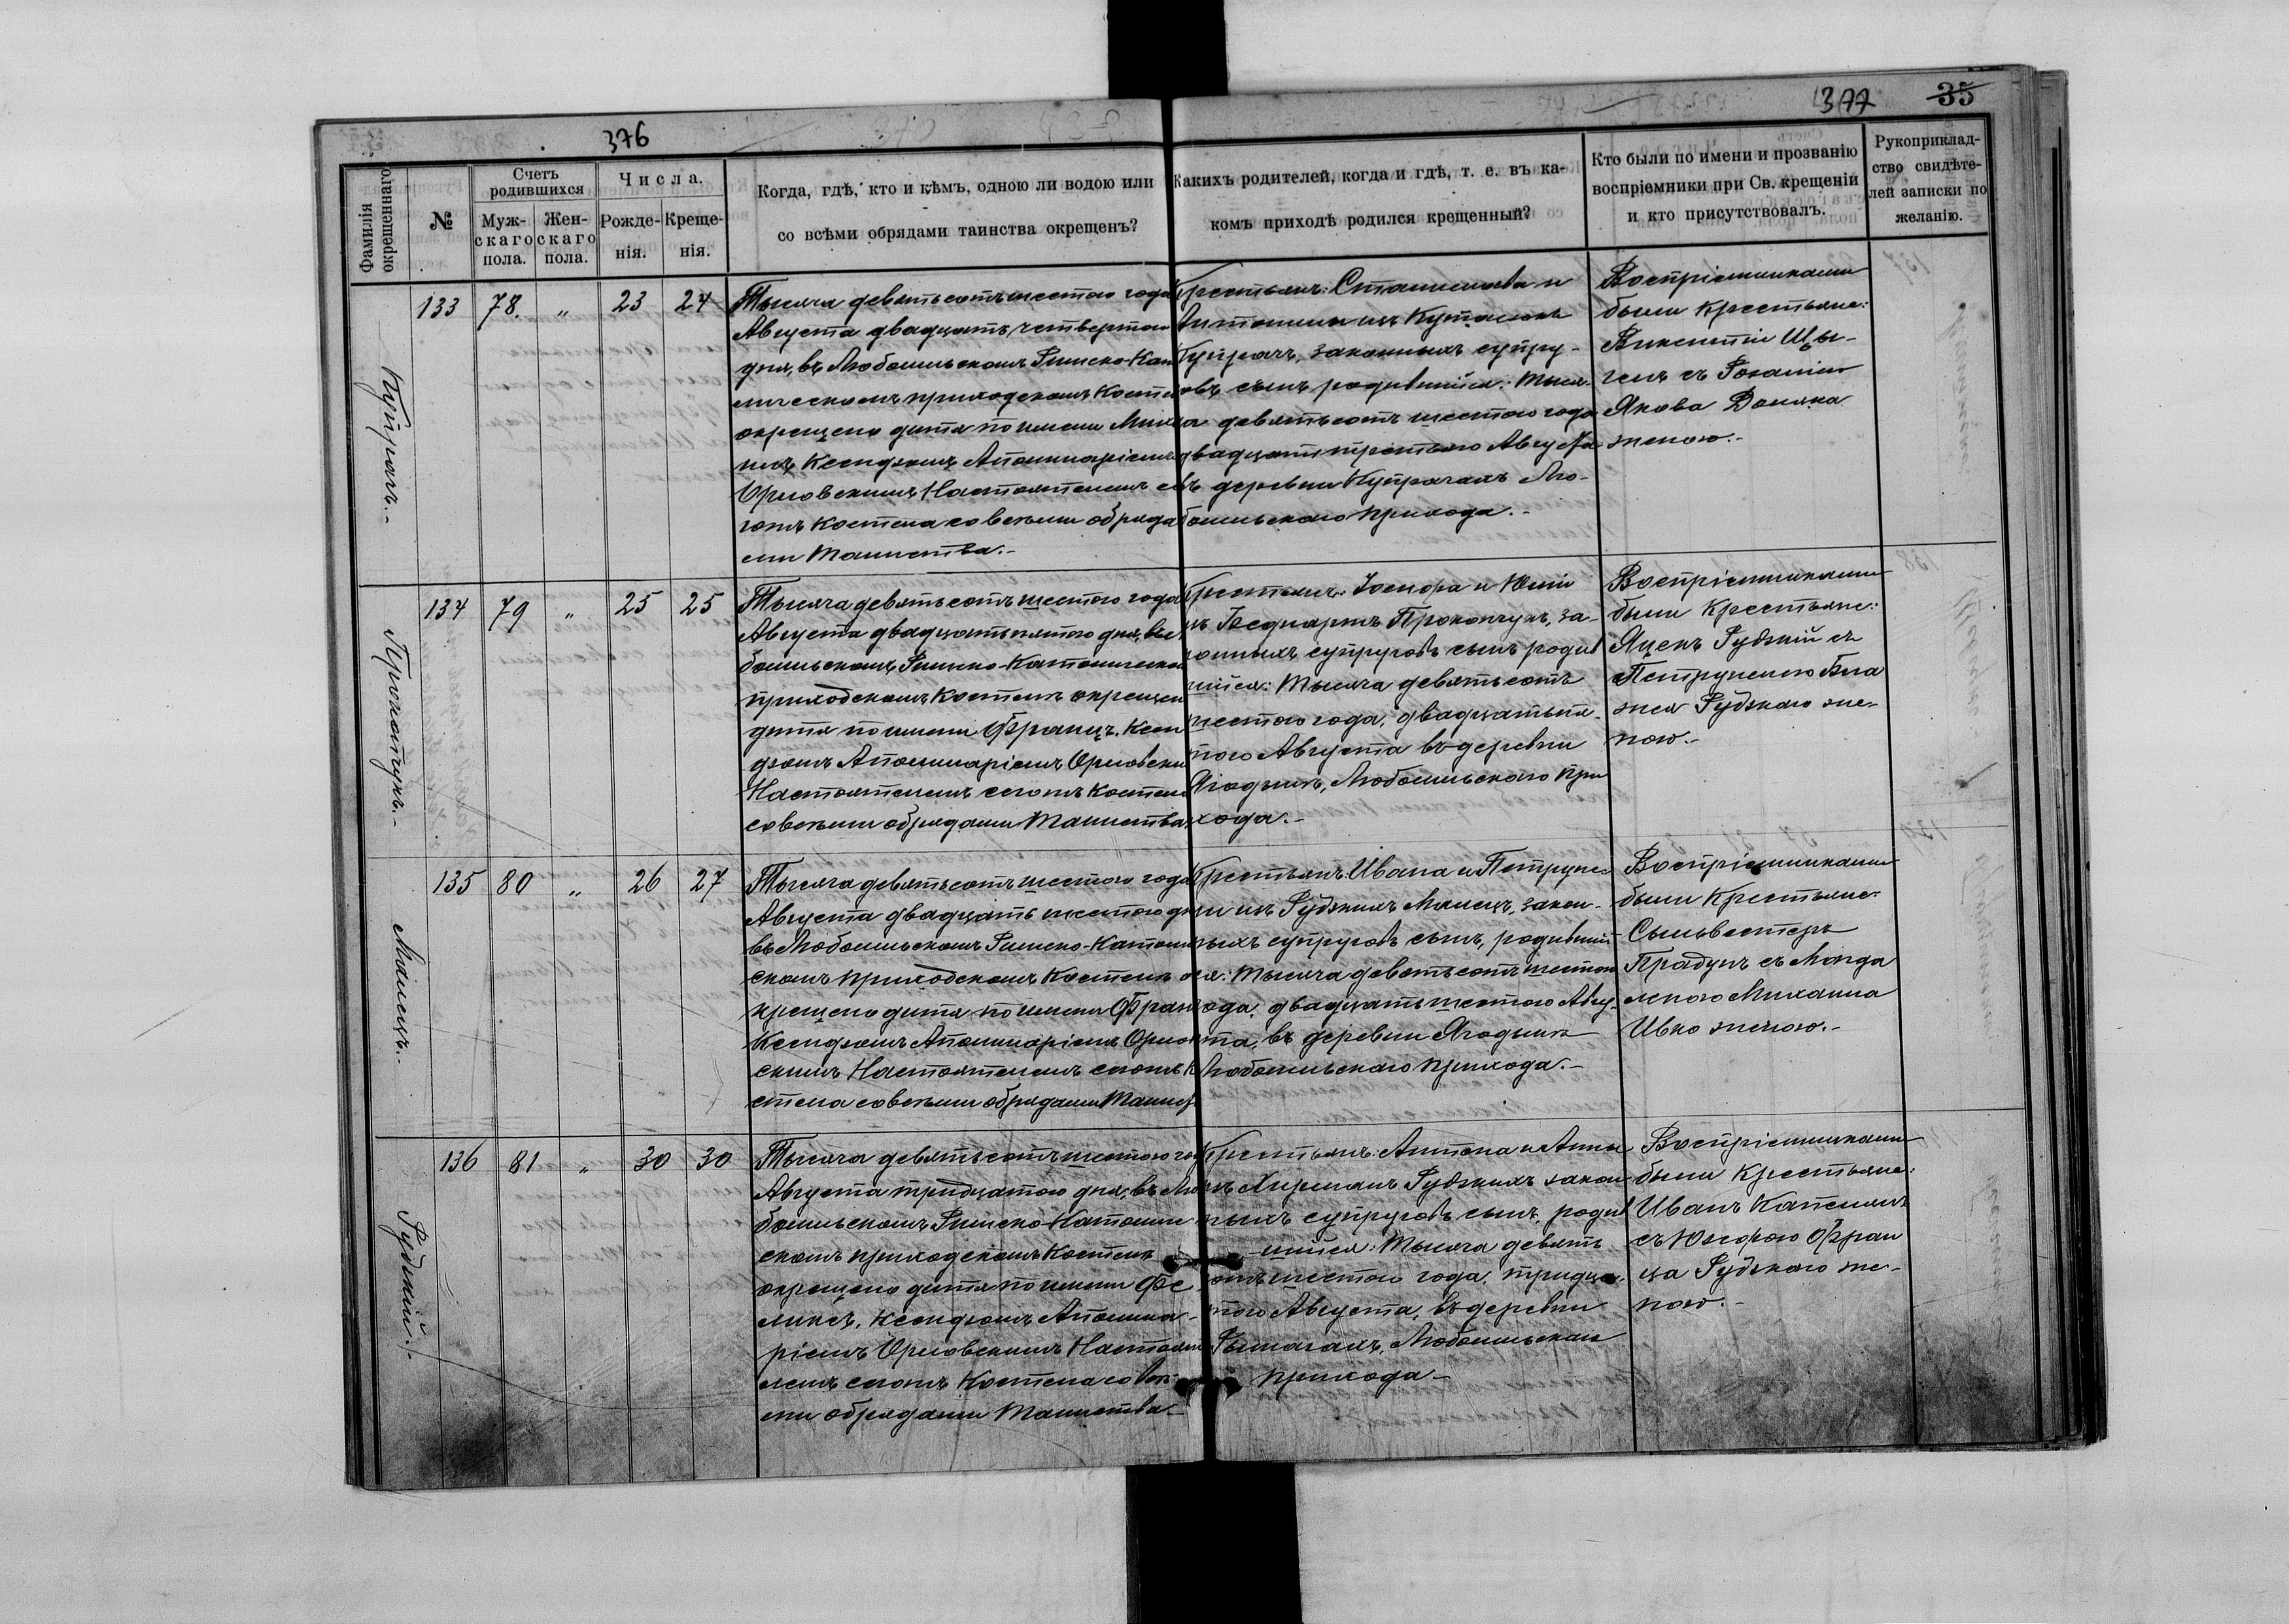 376
377
35
Фамилія окрещеннаго
№
Счетъ родившихся
Муж-
скаго
пола.
Жен-
скаго
пола.
Числа.
Рожде-
нія.
Креще-
нія.
Когда, гдѣ, кто и кѣмъ, одною ли водою или
со всѣми обрядами таинства окрещенъ?
Какихъ родителей, когда и гдѣ, т. е. въ ка-
комъ приходѣ родился крещенный?
Кто были по имени и прозванію
воспріемники при Св. крещеніи
и кто присутствовалъ.
Рукоприклад-
ство свидѣте-
лей записки по
желанію.
133 78. „ 23 24
Тысяча девятьсотъ шестого года
Августа двадцать четвертого
дня, въ Любомльскомъ Римско-Като
лическомъ приходскомъ Косте
окрещено дитя по имени Миха
Ксендзомъ Аполинаріемъ
Орловскимъ Настоятелемъ се
гожъ Костела со всѣми обряда
ми Таинства.-
Крестьянъ: Станислава и
законныхъ супру-
овъ сынъ, родившійся: тыся
а девятьсотъ шестого года
двадцать третьяго Августа
въ деревни Купрачахъ Лю-
бомльскаго прихода.-
Воспріемниками
были Крестьяне:
Викентій
съ
Якова
женою.-
134 79 „ 25 25
Прокопчукъ.
Тысяча девятьсотъ шестого года
Августа двадцать пятого дня, въ
бомльскомъ Римско-Католическом
приходскомъ Костелѣ окрещен
дитя по имени Францъ, Ксен
дзомъ Аполинаріемъ Орловски
Настоятелемъ сегожъ Костел
со всѣми обрядами Таинства.
Крестьянъ: Іосифа и Юліи
изъ Беднарекъ Прокопчукъ, за-
конныхъ супруговъ сынъ родив
шійся: Тысяча девятьсотъ
шестого года, двадцать пя-
того Августа въ деревни
Ягодынъ, Любомльскаго при
хода.-
Воспріемниками
были Крестьяне:
Яцекъ Рудзкій съ
Петрунелею Бла
жея Рудзкаго же-
ною.-
135 80 „ 26 27
Малецъ.
Тысяча девятьсотъ шестого года
Августа двадцать шестого дн
въ Любомльскомъ Римско-Католи
скомъ приходскомъ Костелѣ о
крещено дитя по имени Фран
Ксендзомъ Аполинаріемъ Орлов
скимъ Настоятелемъ сегожъ К
стела со всѣми обрядами Таинс
Крестьянъ: Ивана и Петрунел
и изъ Рудзкихъ Малецъ, закон-
ныхъ супруговъ сынъ, родившій
ся: тысяча девятьсотъ шестого
ода, двадцать шестого Авгу
ста, въ деревни Ягодынъ
Любомльскаго прихода.-
Воспріемниками
были Крестьяне:
Сильвестеръ
Прадунъ съ Магда
леною Михаила
Ивко женою.-
136 81 „ 30 30
Рудзкій.-
Тысяча девятьсотъ шестого го
Августа тридцатого дня, въ Лю
бомльскомъ Римско-Католиче
скомъ приходскомъ Костелѣ
окрещено дитя по имени Фе
ликсъ, Ксендзомъ Аполина-
ріемъ Орловскимъ Настояте
лемъ сегожъ Костела со всѣ-
ми обрядами Таинства.-
Крестьянъ: Антона и Анны
изъ Рудзкихъ закон
ныхъ супруговъ сынъ, родив
шійся: Тысяча девять
отъ шестого года, тридца
того Августа, въ деревни
Рымачахъ, Любомльскаго
прихода.-
Воспріемниками
были Крестьяне:
Иванъ
съ Юзефою Фран
ца Рудзкаго же-
ною.-